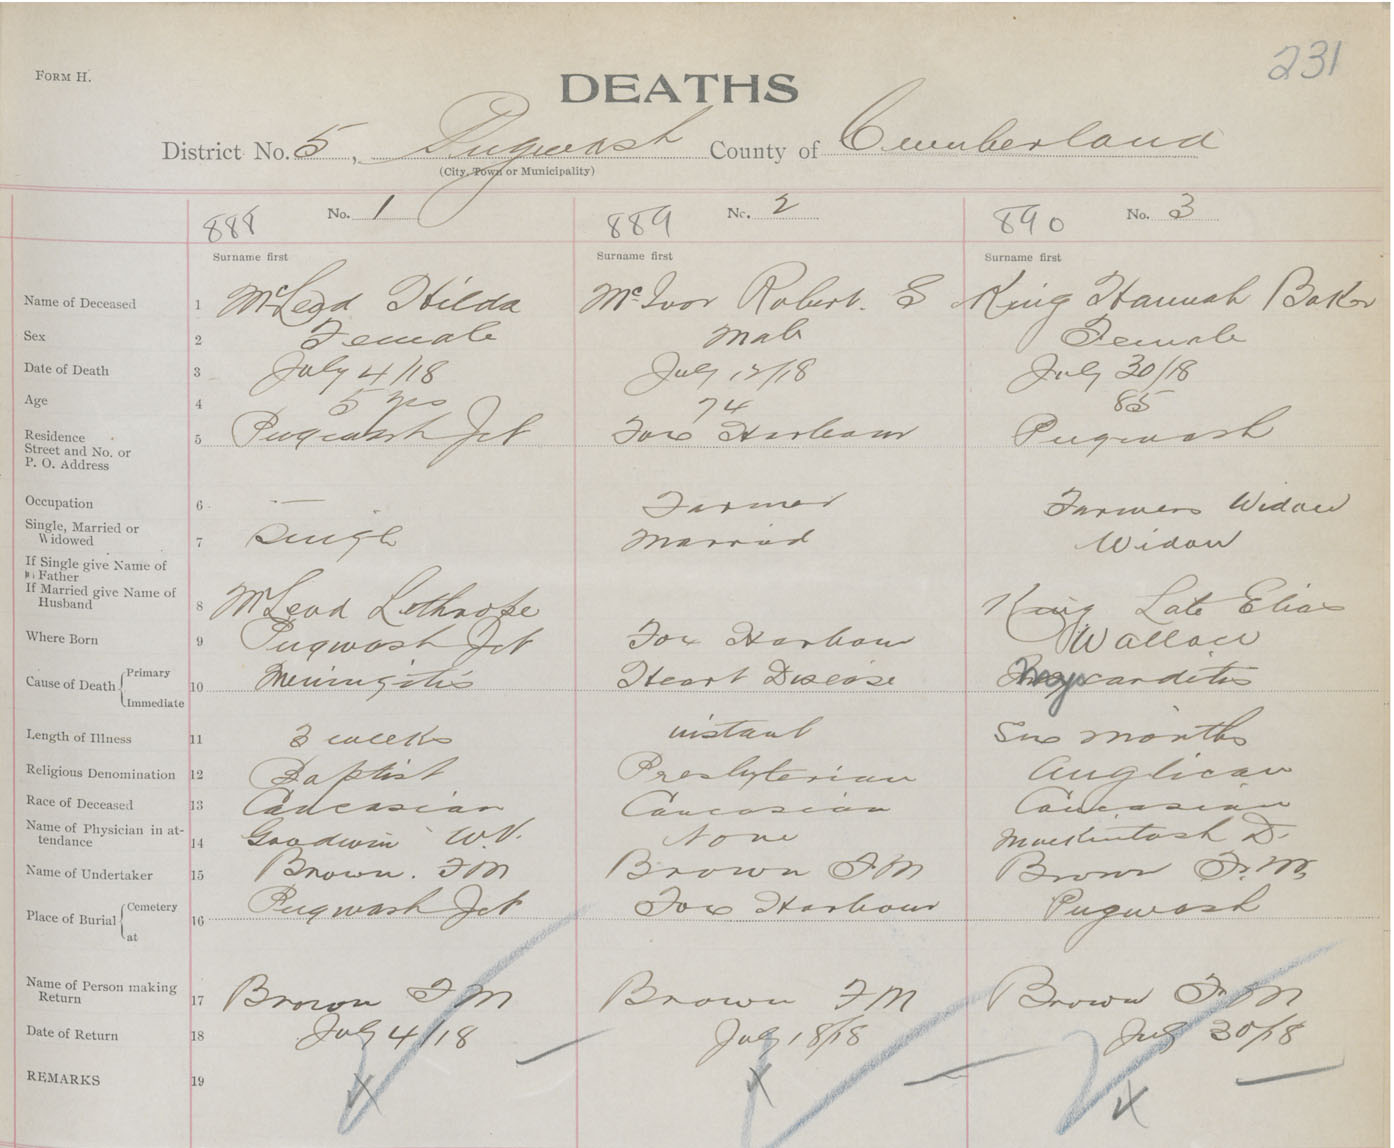 231
FORM H.
DEATHS
District No. 5, Pugwash County of Cumberland
(City, Town or Municipality)
888 No. 1 889 No. 2 890 No. 3
Surname first Surname first Surname first
Name of Deceased 1 McLeod Hilda McIvor Robert. S King Hannah Baker
Sex 2 Female Male Female
Date of Death 3 July 4/18 July 12/18 July 30/18
Age 4 5 yrs 74 85
Residence 5 Pugwash Jct Fox Harbour Pugwash
Street and No. or
P. O. Address
Occupation 6 — Farmer Farmers Widow
Single, Married or
Widowed 7 Single Married Widow
If Single give Name of
Father
If Married give Name of
Husband 8 McLeod Lothrope King Late Elias
Where Born 9 Pugwash Jct Fox Harbour Wallace
Cause of Death Primary 10 Meningitis Heart Disease Myocarditis
Immediate
Length of Illness 11 3 weeks instant Six months
Religious Denomination 12 Baptist Presbyterian Anglican
Race of Deceased 13 Caucasian Caucasian Caucasian
Name of Physician in at-
tendance 14 Goodwin W.V. None Mackintosh D.
Name of Undertaker 15 Brown. F M Brown F M Brown F. M.
Place of Burial Cemetery 16 Pugwash Jct Fox Harbour Pugwash
at
Name of Person making
Return 17 Brown F M Brown F M Brown F. M
Date of Return 18 July 4/18 July 18/18 July 30/18
REMARKS 19 X X X